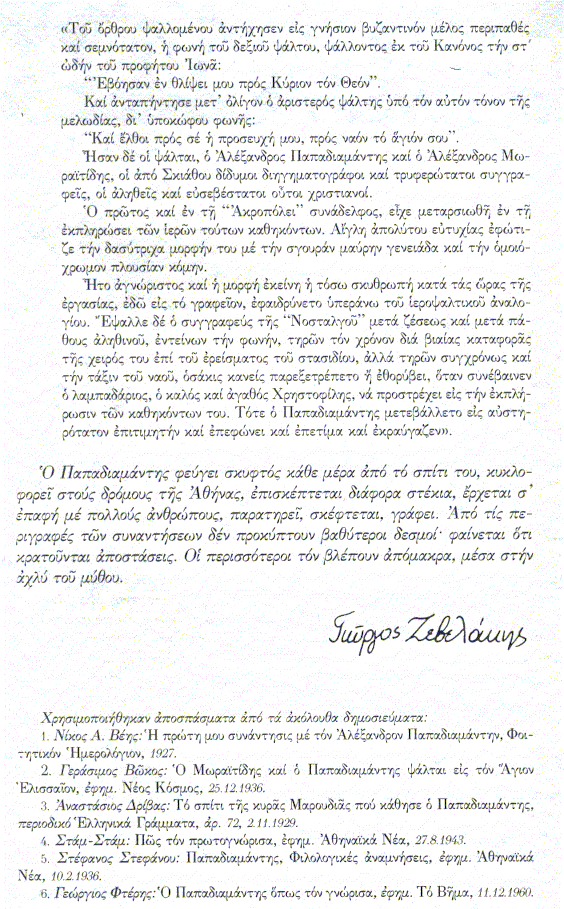 «Τοῦ ὄρθρου ψαλλομένου ἀντήχησεν εἰς γνήσιον βυζαντινόν μέλος περιπαθές
καί σεμνότατον, ἡ φωνή τοῦ δεξιοῦ ψάλτου, ψάλλοντος ἐκ τοῦ Κανόνος τήν στ΄
ὠδήν τοῦ προφήτου Ἰωνᾶ:
“Ἐβόησαν ἐν θλίψει μου πρός Κύριον τόν Θεόν”.
Καί ἀνταπήντησε μετ᾽ ὀλίγον ὁ ἀριστερός ψάλτης ὑπό τόν αὐτόν τόνον τῆς
μελωδίας, δι᾽ ὑποκώφου φωνῆς:
“Καί ἔλθοι πρός σέ ἡ προσευχή μου, πρός ναόν τό ἅγιόν σου”.
Ἦσαν δέ οἱ ψάλται, ὁ Ἀλέξανδρος Παπαδιαμάντης καί ὁ Ἀλέξανδρος Μω-
ραϊτίδης, οἱ ἀπό Σκιάθου δίδυμοι διηγηματογράφοι καί τρυφερώτατοι συγγρα-
φεῖς, οἱ ἀληθεῖς καί εὐσεβέστατοι οὗτοι χριστιανοί.
Ὁ πρῶτος καί ἐν τῇ “Ἀκροπόλει” συνάδελφος, εἶχε μεταρσιωθῆ ἐν τῇ
ἐκπληρώσει τῶν ἱερῶν τούτων καθηκόντων. Αἴγλη ἀπολύτου εὐτυχίας ἐφώτι-
ζε τήν δασύτριχα μορφήν του μέ τήν σγουράν μαύρην γενειάδα καί τήν ὁμοιό-
χρωμον πλουσίαν κόμην.
Ἦτο ἀγνώριστος καί ἡ μορφή ἐκείνη ἡ τόσω σκυθρωπή κατά τάς ὥρας τῆς
ἐργασίας, ἐδῶ εἰς τό γραφεῖον, ἐφαιδρύνετο ὑπεράνω τοῦ ἱεροψαλτικοῦ ἀναλο-
γίου. Ἔψαλλε δέ ὁ συγγραφεύς τῆς “Νοσταλγοῦ” μετά ζέσεως καί μετά πά-
θους ἀληθινοῦ, ἐντείνων τήν φωνήν, τηρῶν τόν χρόνον διά βιαίας καταφορᾶς
τῆς χειρός του ἐπί τοῦ ἐρείσματος τοῦ στασιδίου, ἀλλά τηρῶν συγχρόνως καί
τήν τάξιν τοῦ ναοῦ, ὁσάκις κανείς παρεξετρέπετο ἤ ἐθορύβει, ὅταν συνέβαινεν
ὁ λαμπαδάριος, ὁ καλός καί ἀγαθός Χρηστοφίλης, νά προστρέχει εἰς τήν ἐκπλή-
ρωσιν τῶν καθηκόντων του. Τότε ὁ Παπαδιαμάντης μετεβάλλετο εἰς αὐστη-
ρότατον ἐπιτιμητήν καί ἐπεφώνει καί ἐπετίμα καί ἐκραύγαζεν».
Ὁ Παπαδιαμάντης φεύγει σκυφτός κάθε μέρα ἀπό τό σπίτι του, κυκλο-
φορεῖ στούς δρόμους τῆς Ἀθήνας, ἐπισκέπτεται διάφορα στέκια, ἔρχεται σ᾽
ἐπαφή μέ πολλούς ἀνθρώπους, παρατηρεῖ, σκέφτεται, γράφει. Ἀπό τίς πε-
ριγραφές τῶν συναντήσεων δέν προκύπτουν βαθύτεροι δεσμοί· φαίνεται ὅτι
κρατοῦνται ἀποστάσεις. Οἱ περισσότεροι τόν βλέπουν ἀπόμακρα, μέσα στήν
ἀχλύ τοῦ μύθου.
Γιῶργος Ζεβελάκης
Χρησιμοποιήθηκαν ἀποσπάσματα ἀπό τά ἀκόλουθα δημοσιεύματα:
1. Νίκος Α. Βέης: Ἡ πρώτη μου συνάντησις μέ τόν Ἀλέξανδρον Παπαδιαμάντην, Φοι-
τητικόν Ἡμερολόγιον, 1927.
2. Γεράσιμος Βῶκος: Ὁ Μωραϊτίδης καί ὁ Παπαδιαμάντης ψάλται εἰς τόν Ἅγιον
Ἐλισσαῖον, ἐφημ. Νέος Κόσμος, 25.12.1936.
3. Ἀναστάσιος Δρίβας: Τό σπίτι τῆς κυρᾶς Μαρουδιᾶς πού κάθησε ὁ Παπαδιαμάντης,
περιοδικό Ἑλληνικά Γράμματα, ἀρ. 72, 2.11.1929.
4. Στάμ-Στάμ: Πῶς τόν πρωτογνώρισα, ἐφημ. Ἀθηναϊκά Νέα, 27.8.1943.
5. Στέφανος Στεφάνου: Παπαδιαμάντης, Φιλολογικές ἀναμνήσεις, ἐφημ. Ἀθηναϊκά
Νέα, 10.2.1936.
6. Γεώργιος Φτέρης: Ὁ Παπαδιαμάντης ὅπως τόν γνώρισα, ἐφημ. Τό Βῆμα, 11.12.1960.